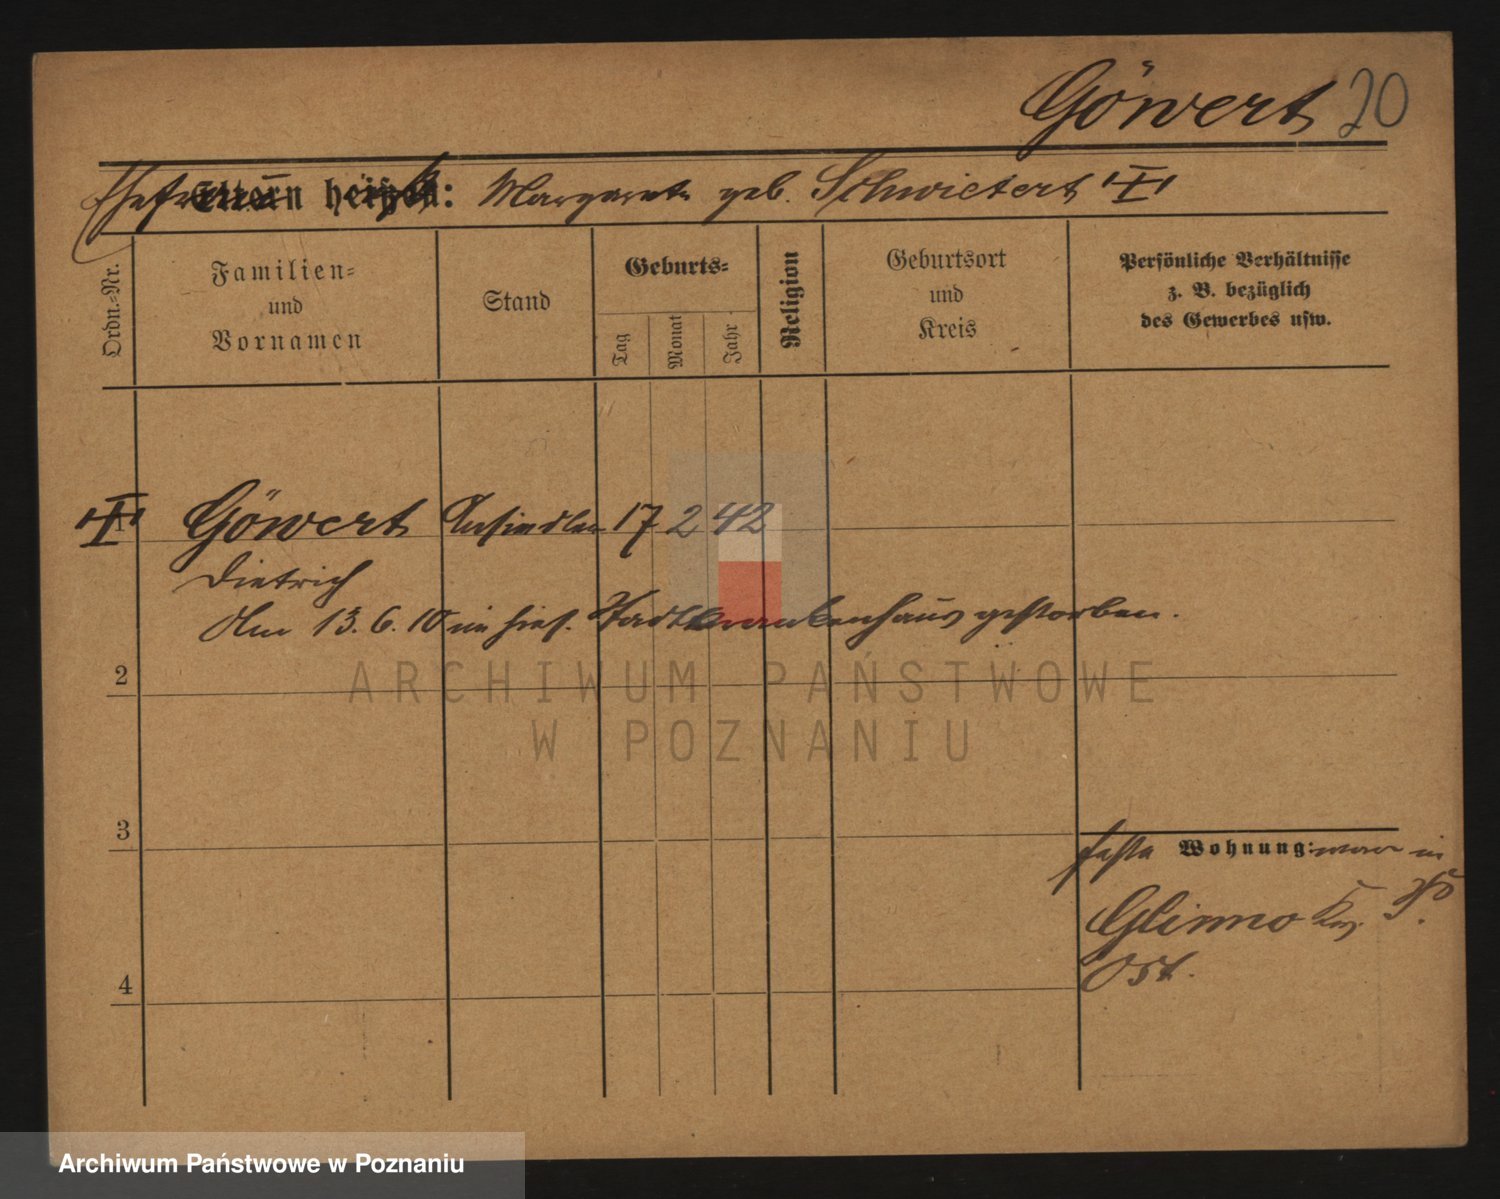 Göwert 20
Eltern heißen: Margarete geb. Schwietert
Ordn.-Nr.
Familien-
und
Vornamen
Stand
Geburts-
Tag
Monat
Jahr
Religion
Geburtsort
und
Kreis
Persönliche Verhältnisse
z. B. bezüglich
des Gewerbes usw.
1 Göwert Ansiedler 17 2 42
Dietrich
Am 13. 6. 10 im hies. Stadtkrankenhaus gestorben.
2
ARCHIWUM PAŃSTWOWE
W POZNANIU
3
Wohnung: war in
Glinno
Ost.
4
Archiwum Państwowe w Poznaniu